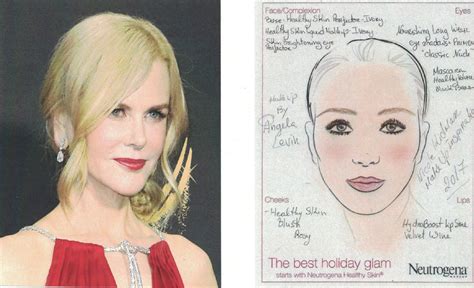 Face/Complexion
Eyes
Base - Healthy Skin Perfector - Ivory
Healthy Skin Liquid Makeup - Ivory
Skin Brightening eye
Perfector
Nourishing Long Wear
eye shadow + Primer
"Classic Nude"
Mascara
Healthy Volume
Make Up
By
Angela
Levin
Nicole
Make Up
2017
Cheeks
Lips
- Healthy Skin
Blush
Rosy
HydroBoost Lip Shine
Velvet Wine
The best holiday glam
starts with Neutrogena Healthy Skin®
Neutrogena